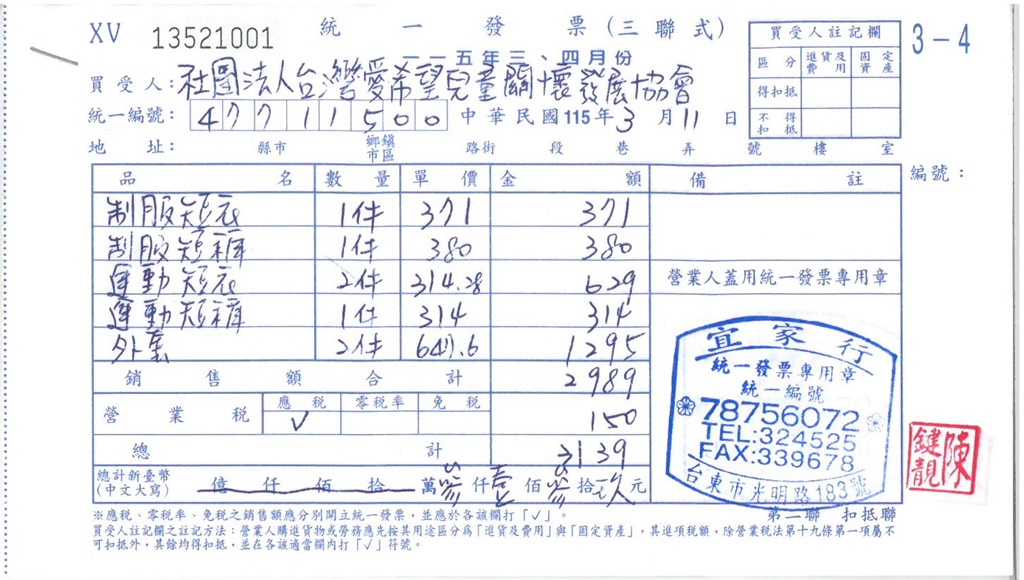 XV 13521001 統一發票(三聯式)
一一五年三、四月份
3-4
買受人註記欄
區分 進貨及費用 固定資產
得扣抵
不得扣抵
買受人:社團法人台灣愛希望兒童關懷發展協會
統一編號:47711500 中華民國115年3月11日
地址: 縣市 鄉鎮市區 路街 段 巷 弄 號 樓 室
品名 數量 單價 金額 備註 編號:
制服短衣 1件 371 371
制服短褲 1件 380 380
運動短衣 2件 314.28 629
營業人蓋用統一發票專用章
運動短褲 1件 314 314
外套 2件 647.6 1295
銷售額合計 2989
營業稅 應稅 零稅率 免稅 150
✓
總計 3139
總計新臺幣(中文大寫) 億仟佰拾萬參仟壹佰參拾玖元
宜家行
統一發票專用章
統一編號
78756072
TEL:324525
FAX:339678
台東市光明路183號
陳鍵靚
第二聯 扣抵聯
※應稅、零稅率、免稅之銷售額應分別開立統一發票,並應於各該欄打「✓」。
買受人註記欄之註記方法:營業人購進貨物或勞務應先按其用途區分為「進貨及費用」與「固定資產」,其進項稅額,除營業稅法第十九條第一項屬不
可扣抵外,其餘均得扣抵,並在各該適當欄內打「✓」符號。